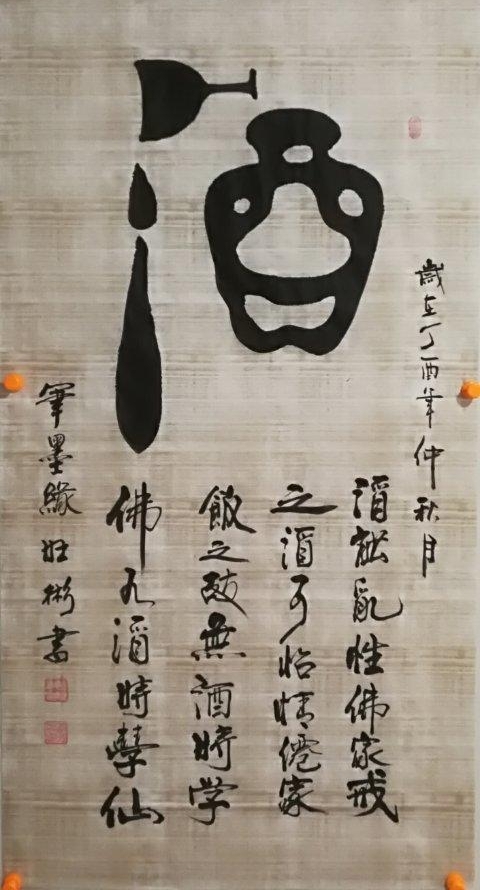 酒
歲在丁酉年仲秋月
酒能亂性佛家戒
之酒可怡情僊家
飲之故無酒時学
佛有酒時學仙
筆墨緣 彬書